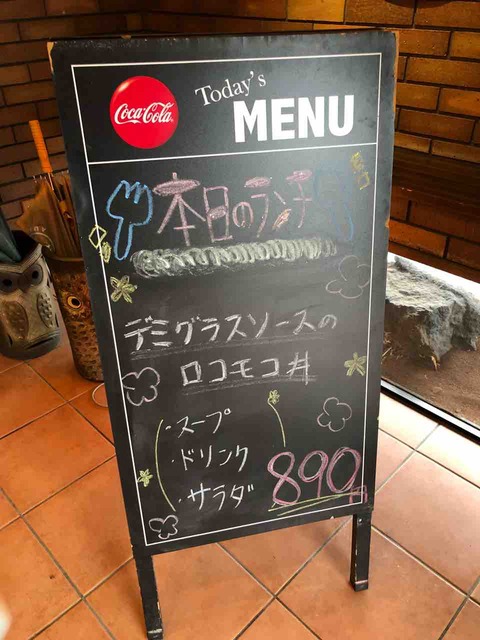 Coca-Cola
Today's
MENU
本日のランチ
デミグラスソースの
ロコモコ丼
・スープ
・ドリンク
・サラダ
890円